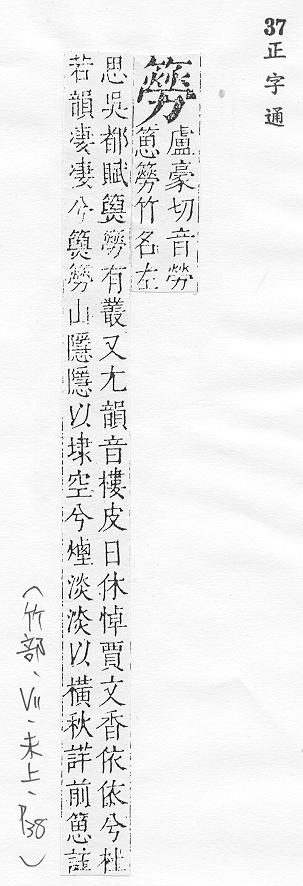 37
正字通
簩
盧豪切音勞
篻簩竹名左
思吳都賦篻簩有叢又尤韻音樓皮日休悼賈文香依依兮杜
若韻淒淒兮篻簩山隱隱以埭空兮煙淡淡以橫秋詳前篻註
（竹部、VII、未上、P38）